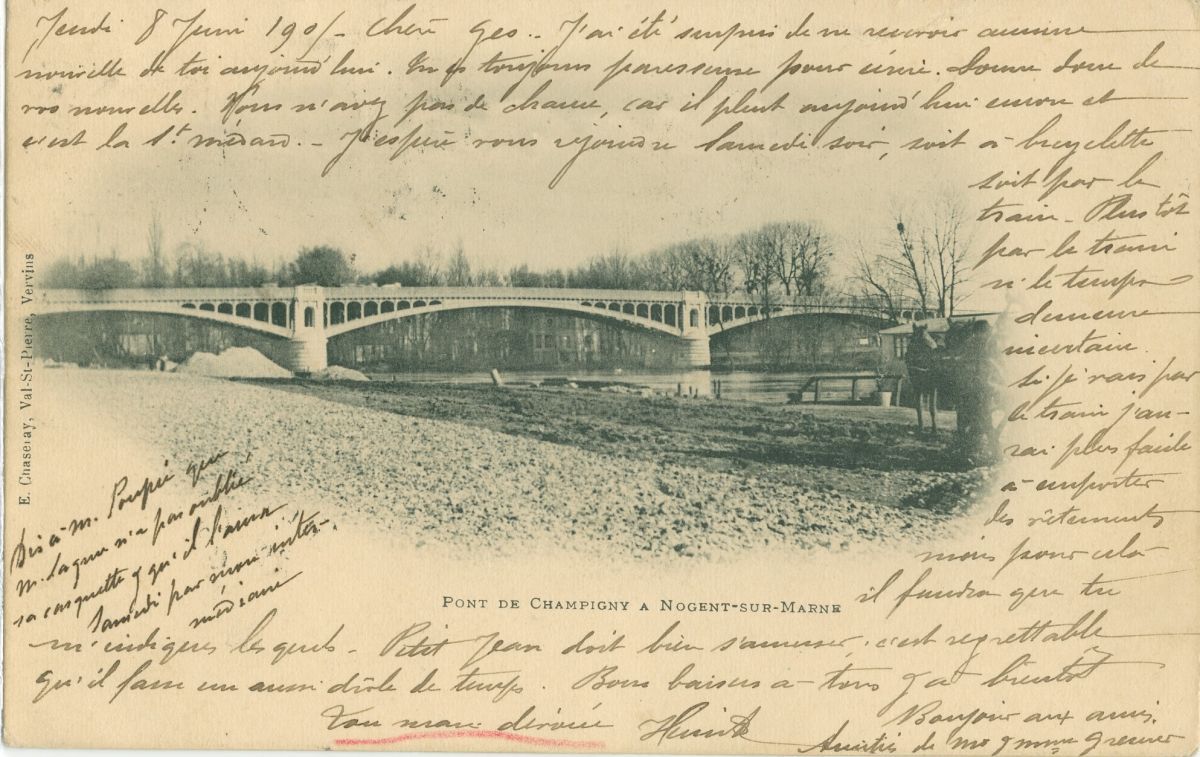 Jeudi 8 Juin 190/- Chère Geo.. J'ai été surpris de ne recevoir aucune
nouvelle de toi aujourd'hui. Tu es toujours paresseuse pour écrire. Donne donc de
vos nouvelles. Vous n'avez pas de chance, car il pleut aujourd'hui encore et
c'est la St. médard. - J'espère vous rejoindre Samedi soir, soit à bicyclette
soit par le
train - Plustôt
par le train
si le temps
demeure
incertain.
Si je vais par
le train j'au-
rai plus facile
à emporter
des vêtements
mais pour cela
il faudra que tu
m'indiques lesquels - Petit Jean doit bien s'amuser, c'est regrettable
qu'il fasse un aussi drôle de temps. Bons baisers à tous & à bientôt
Ton mari dévoué
Bonjour aux amis.
Amitiés de
Dis à M. Poupié que
M. n'a pas oublié
sa casquette & qu'il l'aura
Samedi par mon inter-
médiaire
E. Chaseray, Val-St-Pierre, Vervins
PONT DE CHAMPIGNY A NOGENT-SUR-MARNE